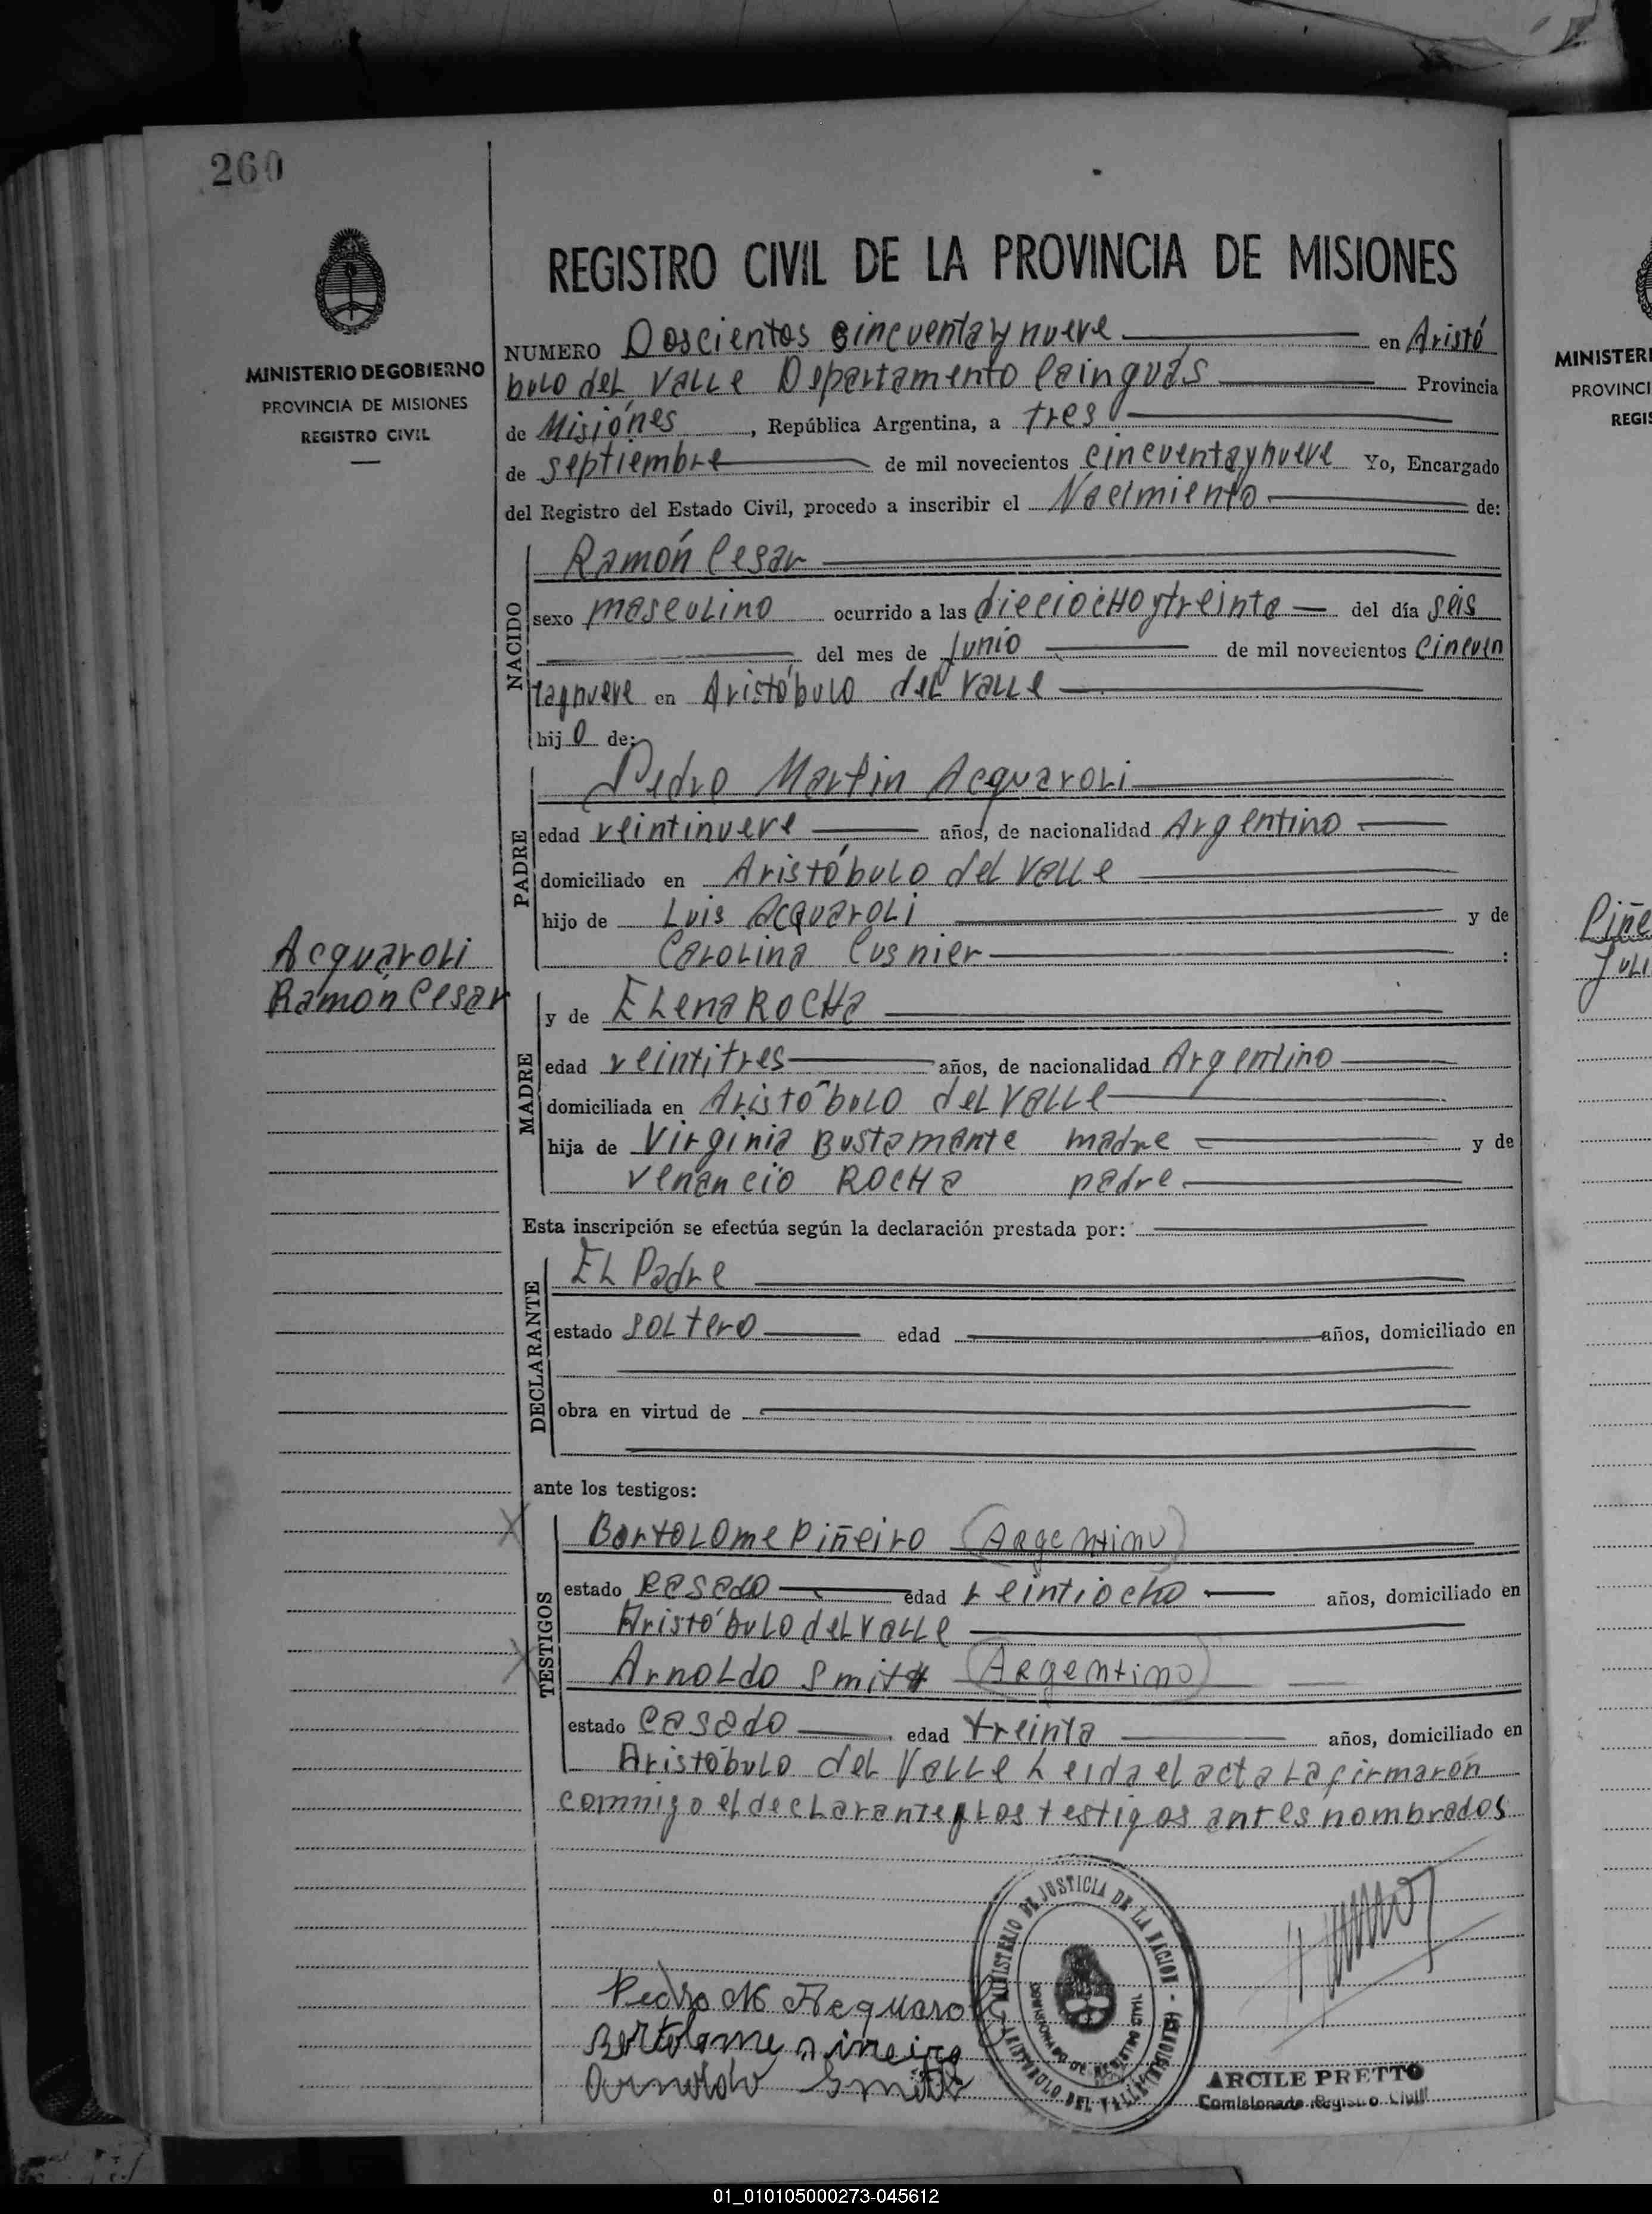 260
MINISTERIO DE GOBIERNO
PROVINCIA DE MISIONES
REGISTRO CIVIL
REGISTRO CIVIL DE LA PROVINCIA DE MISIONES
NUMERO Doscientos cincuenta y nueve en Aristó
bulo del Valle Departamento Cainguás Provincia
de Misiónes, República Argentina, a tres
de septiembre de mil novecientos cincuenta y nueve Yo, Encargado
del Registro del Estado Civil, procedo a inscribir el Nacimiento de:
NACIDO
Ramón Cesar
sexo masculino ocurrido a las dieciocho y treinta del día seis
del mes de Junio de mil novecientos cincuen
ta y nueve en Aristóbulo del Valle
hijo de:
PADRE
Pedro Martin Acquaroli
edad veintinueve años, de nacionalidad Argentino
domiciliado en Aristóbulo del Valle
hijo de Luis Acquaroli y de
Carolina Cusnier:
Acquaroli
Ramón Cesar
MADRE
y de Elena Rocha
edad veintitres años, de nacionalidad Argentino
domiciliada en Aristóbulo del Valle
hija de Virginia Bustamante madre y de
Venancio Rocha padre
Esta inscripción se efectúa según la declaración prestada por:
DECLARANTE
El Padre
estado soltero edad años, domiciliado en
obra en virtud de
ante los testigos:
TESTIGOS
Bortolome Piñeiro (Argentino)
estado casado edad veintiocho años, domiciliado en
Aristóbulo del Valle
Arnoldo Smith (Argentino)
estado casado edad treinta años, domiciliado en
Aristóbulo del Valle Leida el acta la firmaron
commigo el declarante y los testigos antes nombrados
Pedro M Acquaroli
Bortolome Pineiro
Arnoldo Smith
MINISTERIO DE JUSTICIA DE LA NACION - ARISTOBULO DEL VALLE (MISIONES)
ARCILE PRETTO
Comisionado Registro Civil
MINISTERI
PROVINCI
REGIS
Piñe
Juli
01_010105000273-045612